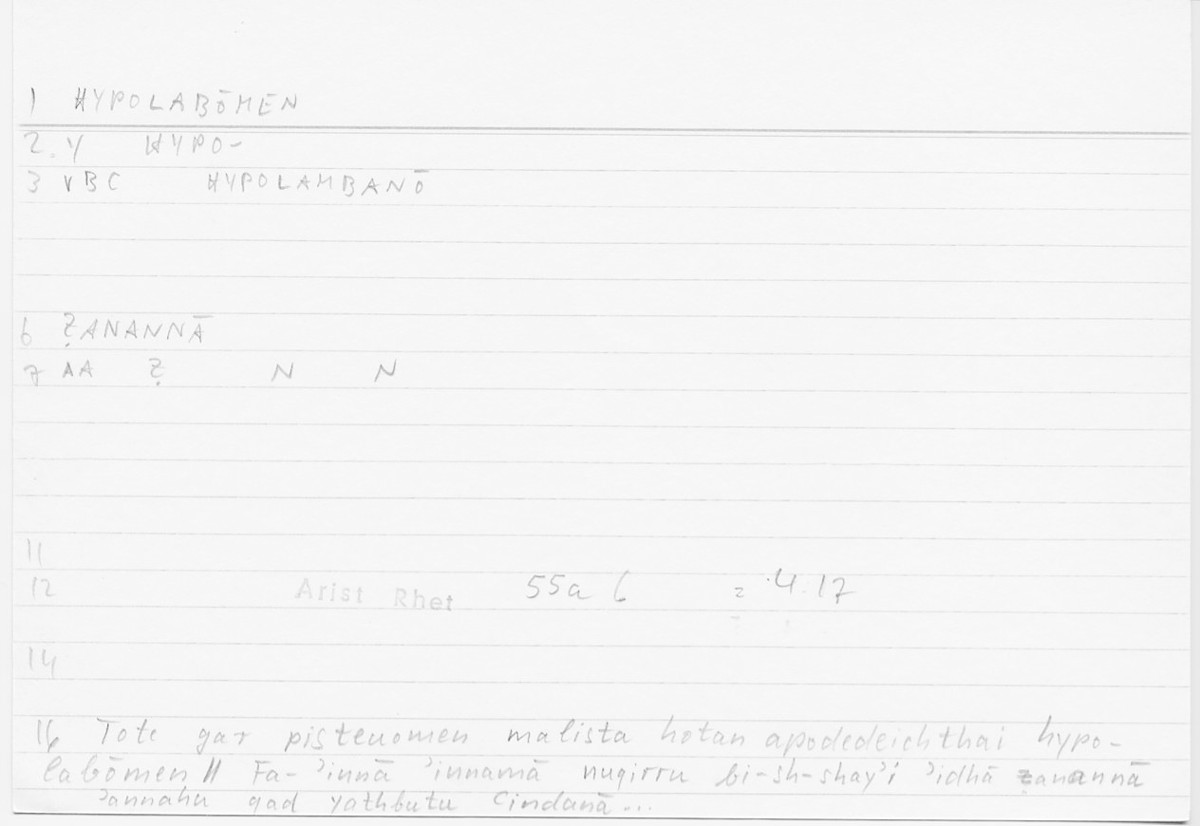 1 HYPOLABŌMEN
2. Y HYPO-
3 VBC HYPOLAMBANŌ
6 ẒANANNĀ
7 AA Ẓ N N
11
12 Arist Rhet 55a 6 = 4.17
14
16 Tote gar pisteuomen malista hotan apodedeichthai hypo-
labōmen // Fa-ʾinnā ʾinnamā nuqirru bi-sh-shayʾi ʾidhā ẓanannā
ʾannahu qad yathbutu ʿindanā...